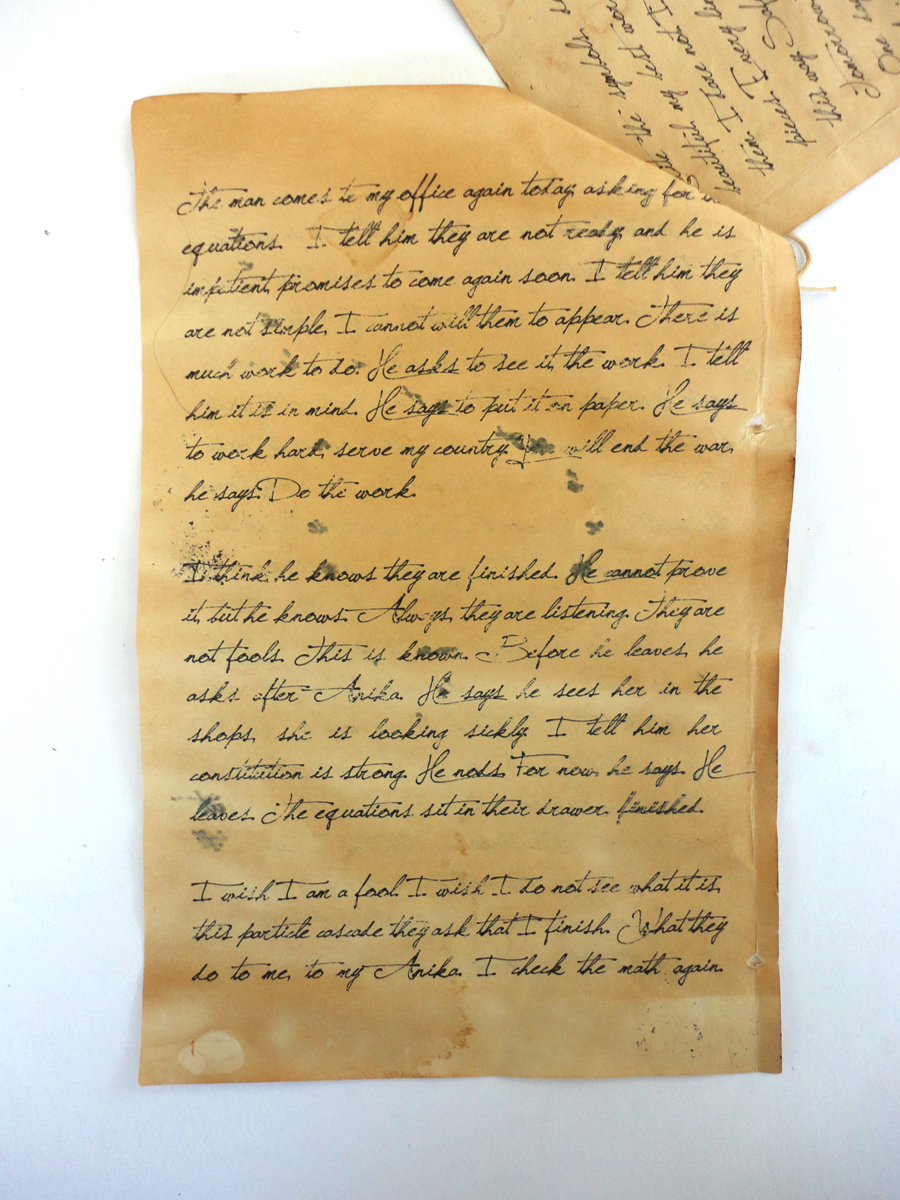 The man comes to my office again today, asking for
equations. I tell him they are not ready, and he is
impatient, promises to come again soon. I tell him they
are not simple, I cannot will them to appear. There is
much work to do. He asks to see it, the work. I tell
him it is in mind. He says to put it on paper. He says
to work hard, serve my country. You will end the war,
he says. Do the work.
I think he knows they are finished. He cannot prove
it, but he knows. Always, they are listening. They are
not fools. This is known. Before he leaves, he
asks after Anika. He says he sees her in the
shops, she is looking sickly. I tell him her
constitution is strong. He nods. For now, he says. He
leaves. The equations sit in their drawer, finished.
I wish I am a fool. I wish I do not see what it is,
this particle cascade they ask that I finish. What they
do to me, to my Anika. I check the math again.
the symbols
beautiful, my last
then. I have not I
pieces. I very
this way.
Tomorrow
One